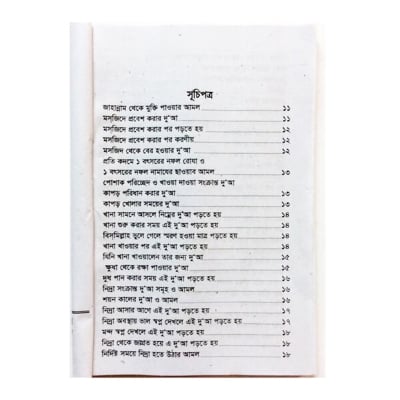 সূচিপত্র
জাহান্নাম থেকে মুক্তি পাওয়ার আমল ১১
মসজিদে প্রবেশ করার দু'আ ১১
মসজিদে প্রবেশ করার পর পড়তে হয় ১২
মসজিদে প্রবেশ করার পর করণীয় ১২
মসজিদ থেকে বের হওয়ার দু'আ ১২
প্রতি কদমে ১ বৎসরের নফল রোযা ও
১ বৎসরের নফল নামাযের ছাওয়াব আমল ১৩
পোশাক পরিচ্ছেদ ও খাওয়া দাওয়া সংক্রান্ত দু'আ
কাপড় পরিধান করার দু'আ ১৩
কাপড় খোলার সময়ের দু'আ ১৩
খানা সামনে আসলে নিম্নের দু'আ পড়তে হয় ১৪
খানা শুরু করার সময় এই দু'আ পড়তে হয় ১৪
বিসমিল্লাহ ভুলে গেলে স্মরণ হওয়া মাত্র পড়তে হয় ১৪
খানা খাওয়ার পর এই দু'আ পড়তে হয় ১৪
যিনি খানা খাওয়ালেন তার জন্য দু'আ ১৫
ক্ষুধা থেকে রক্ষা পাওয়ার দু'আ ১৫
দুধ পান করার সময় এই দু'আ পড়তে হয় ১৬
নিদ্রা সংক্রান্ত দু'আ সমূহ ও আমল ১৬
শয়ন কালের দু'আ ও আমল ১৬
নিদ্রা আসার আগে এই দু'আ পড়তে হয় ১৭
নিদ্রা অবস্থায় ভাল স্বপ্ন দেখলে এই দু'আ পড়তে হয় ১৭
মন্দ স্বপ্ন দেখলে এই দু'আ পড়তে হয় ১৮
নিদ্রা থেকে জাগ্রত হয়ে এ দু'আ পড়তে হয় ১৮
নির্দিষ্ট সময়ে নিদ্রা হতে উঠার আমল ১৮